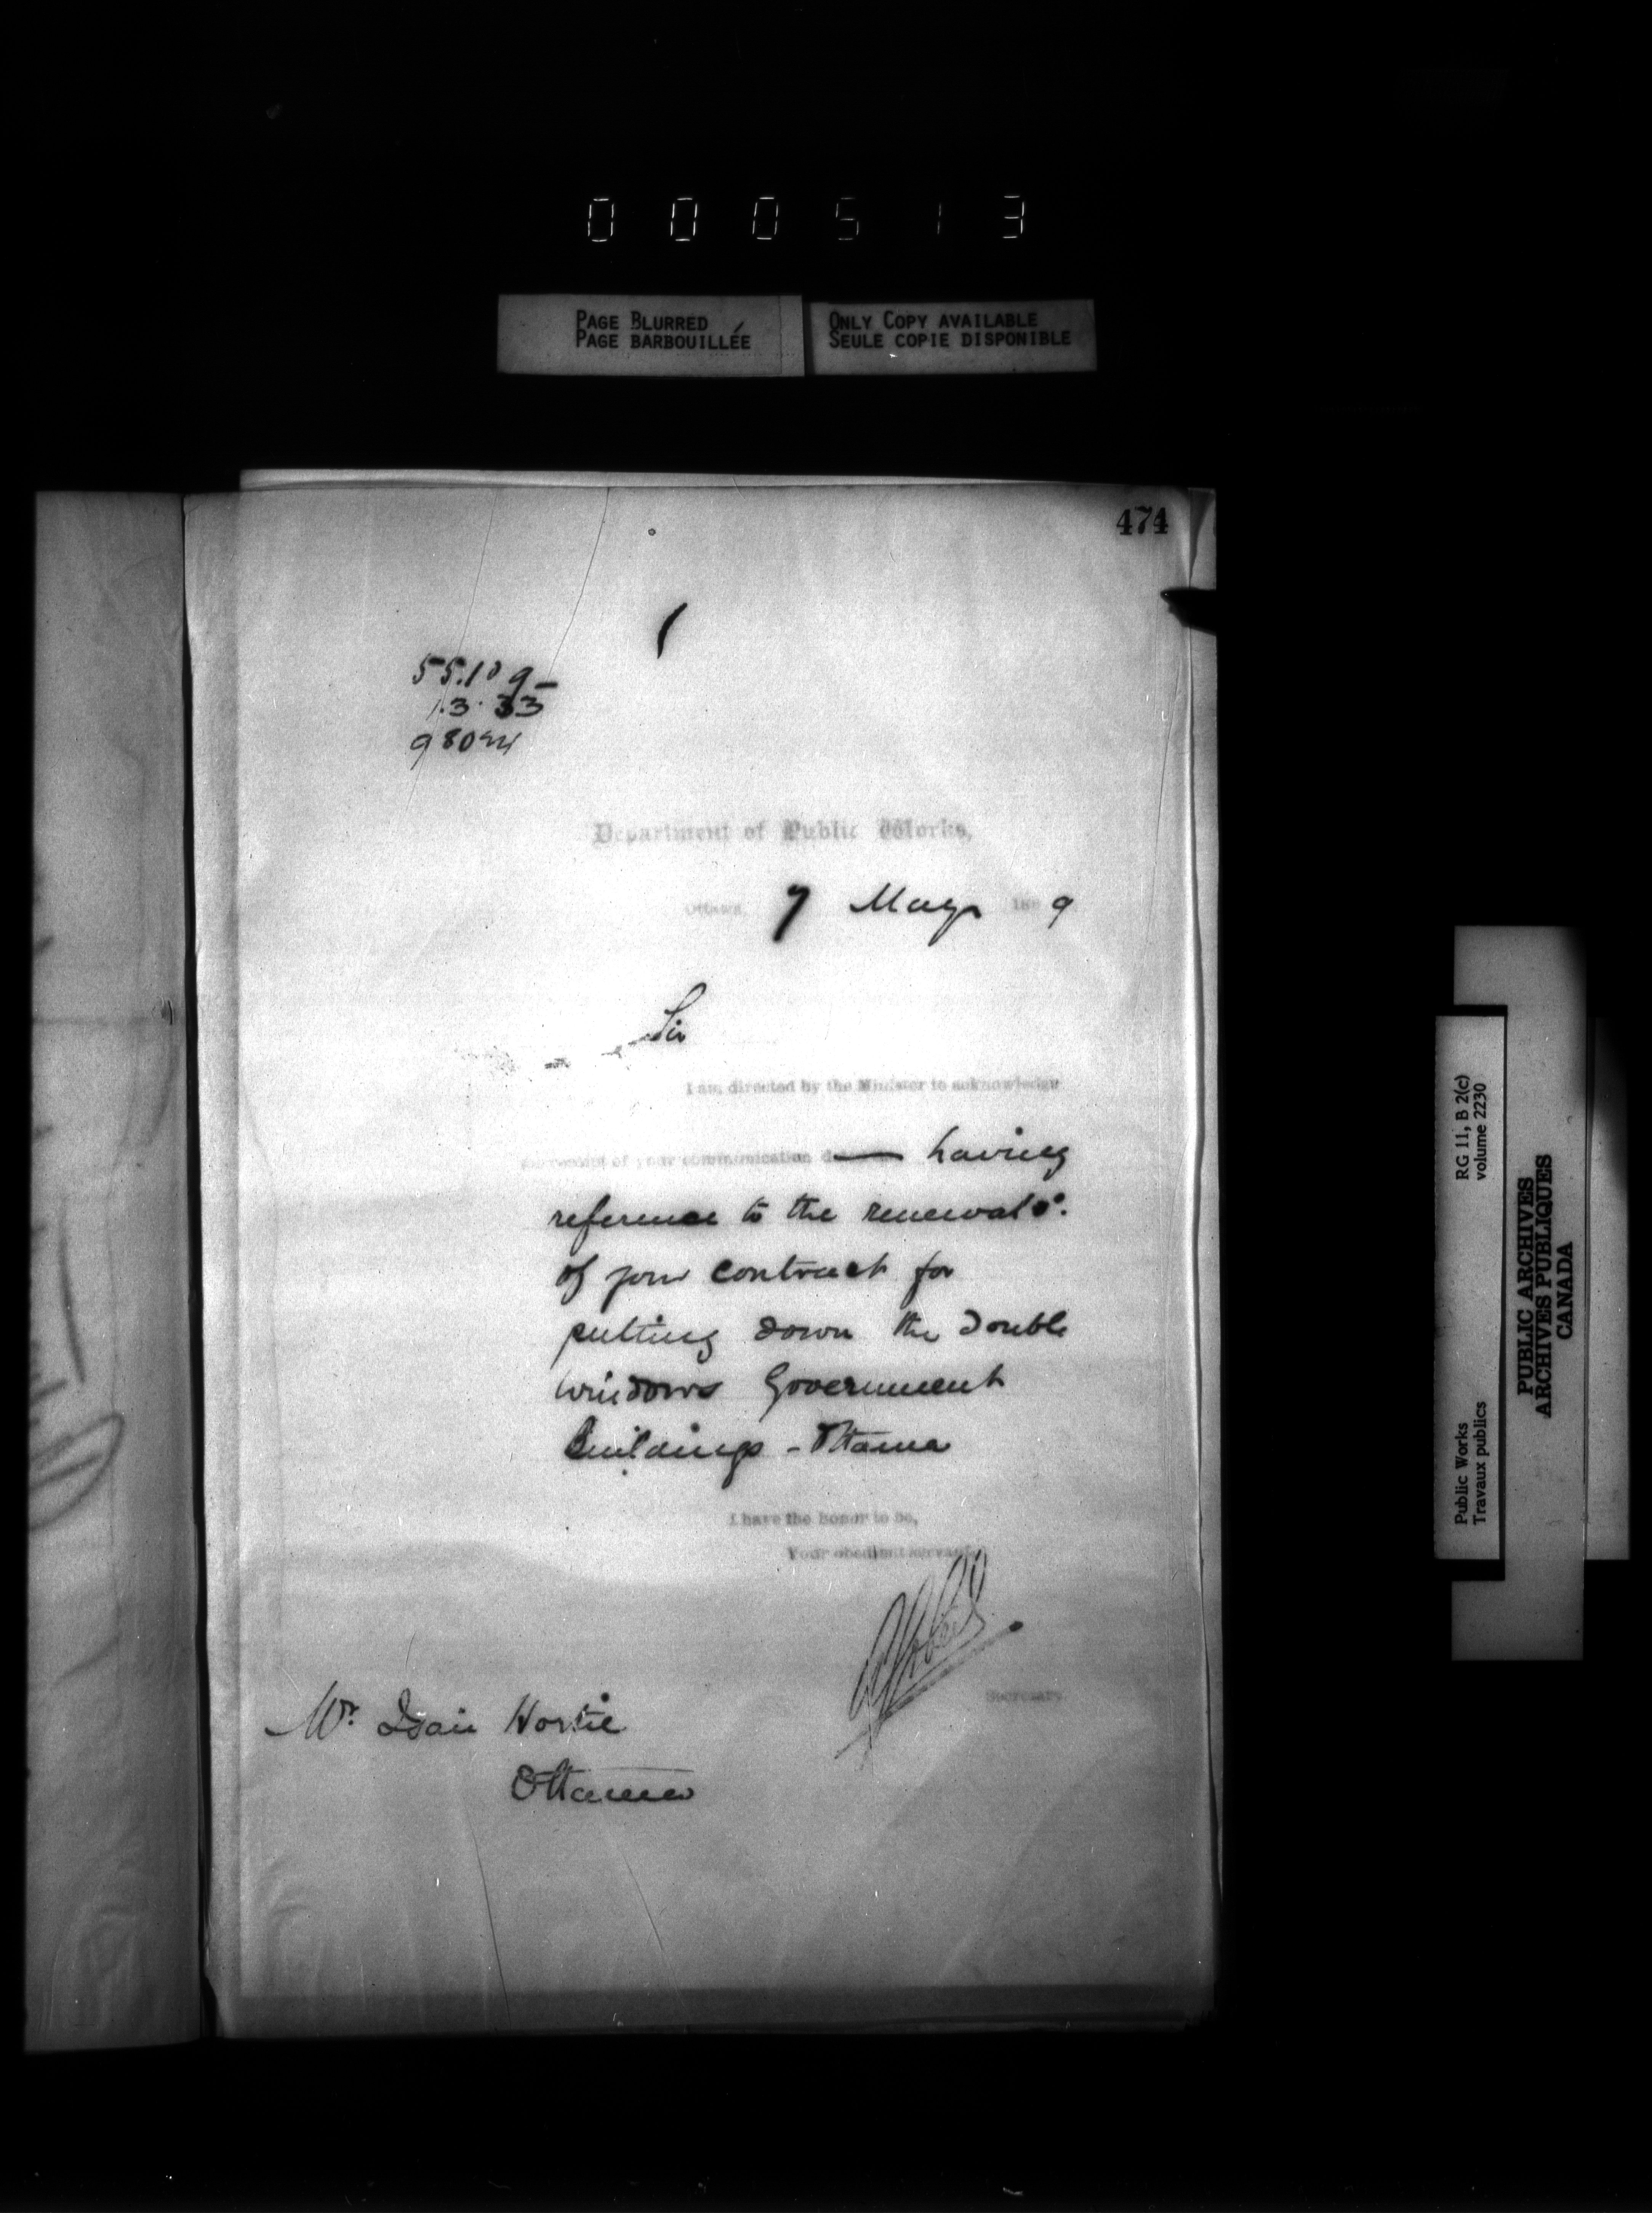 0 0 0 5 1 3
PAGE BLURRED
PAGE BARBOUILLÉE
ONLY COPY AVAILABLE
SEULE COPIE DISPONIBLE
474
Department of Public Works,
Ottawa, 7 May 188 9
Sir
I am directed by the Minister to acknowledge
receipt of your communication — having
reference to the renewal
of your contract for
putting down the double
windows Government
Buildings - Ottawa
I have the honor to be,
Your obedient servant
Secretary
Mr. Isaie Hortie
Ottawa
Public Works
Travaux publics
RG 11, B 2(c)
volume 2230
PUBLIC ARCHIVES
ARCHIVES PUBLIQUES
CANADA